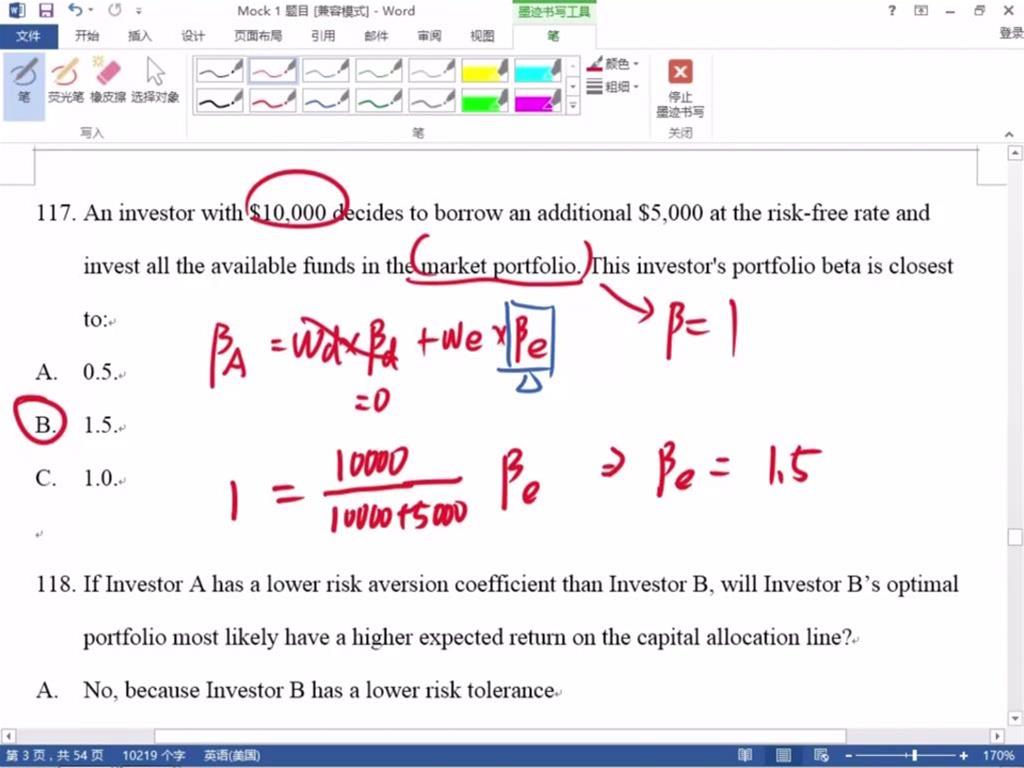 Mock 1 题目 [兼容模式] - Word
墨迹书写工具
?
登录
文件 开始 插入 设计 页面布局 引用 邮件 审阅 视图 笔
笔 荧光笔 橡皮擦 选择对象
颜色
粗细
停止
墨迹书写
写入 笔 关闭
117. An investor with $10,000 decides to borrow an additional $5,000 at the risk-free rate and
invest all the available funds in the market portfolio. This investor's portfolio beta is closest
to:
β= 1
βA = Wd×βd + We × βe
=0
A. 0.5.
B. 1.5.
C. 1.0.
1 = 10000 / 10000+5000 βe ⇒ βe = 1.5
118. If Investor A has a lower risk aversion coefficient than Investor B, will Investor B’s optimal
portfolio most likely have a higher expected return on the capital allocation line?
A. No, because Investor B has a lower risk tolerance
第 3 页，共 54 页 10219 个字 英语(美国) 170%